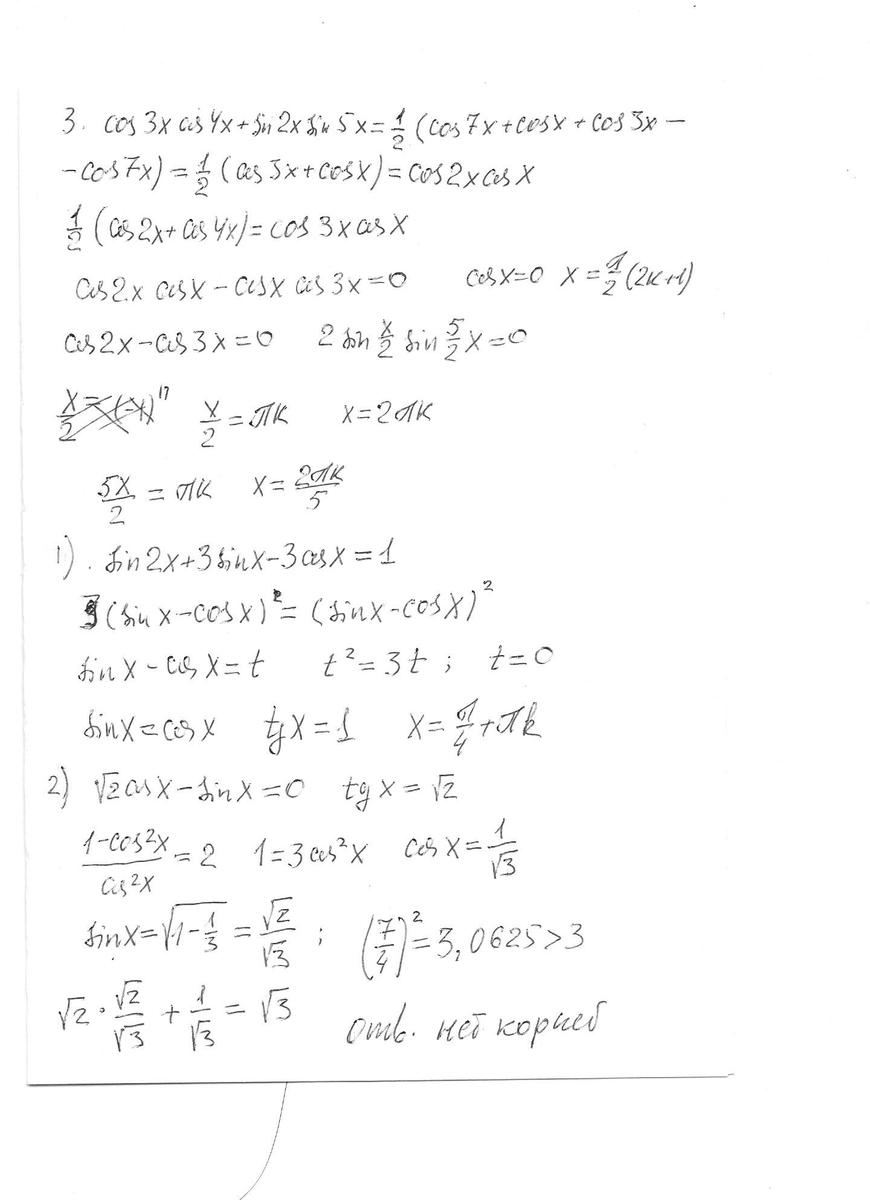 3. cos 3x cos 4x + sin 2x sin 5x = 1/2 (cos 7x + cos x + cos 3x −
− cos 7x) = 1/2 (cos 3x + cos x) = cos 2x cos x
1/2 (cos 2x + cos 4x) = cos 3x cos x
cos 2x cos x − cos x cos 3x = 0 cos x = 0 x = π/2 (2k+1)
cos 2x − cos 3x = 0 2 sin x/2 sin 5/2 x = 0
x/2 = πk x = 2πk
5x/2 = πk x = 2πk/5
1). sin 2x + 3 sin x − 3 cos x = 1
3 (sin x − cos x) = (sin x − cos x)²
sin x − cos x = t t² = 3t ; t = 0
sin x = cos x tg x = 1 x = π/4 + πk
2) √2 cos x − sin x = 0 tg x = √2
1−cos²x/cos²x = 2 1 = 3 cos²x cos x = 1/√3
sin x = √(1 − 1/3) = √2/√3 ; (7/4)² = 3,0625 > 3
√2 · √2/√3 + 1/√3 = √3 отв. нет корней